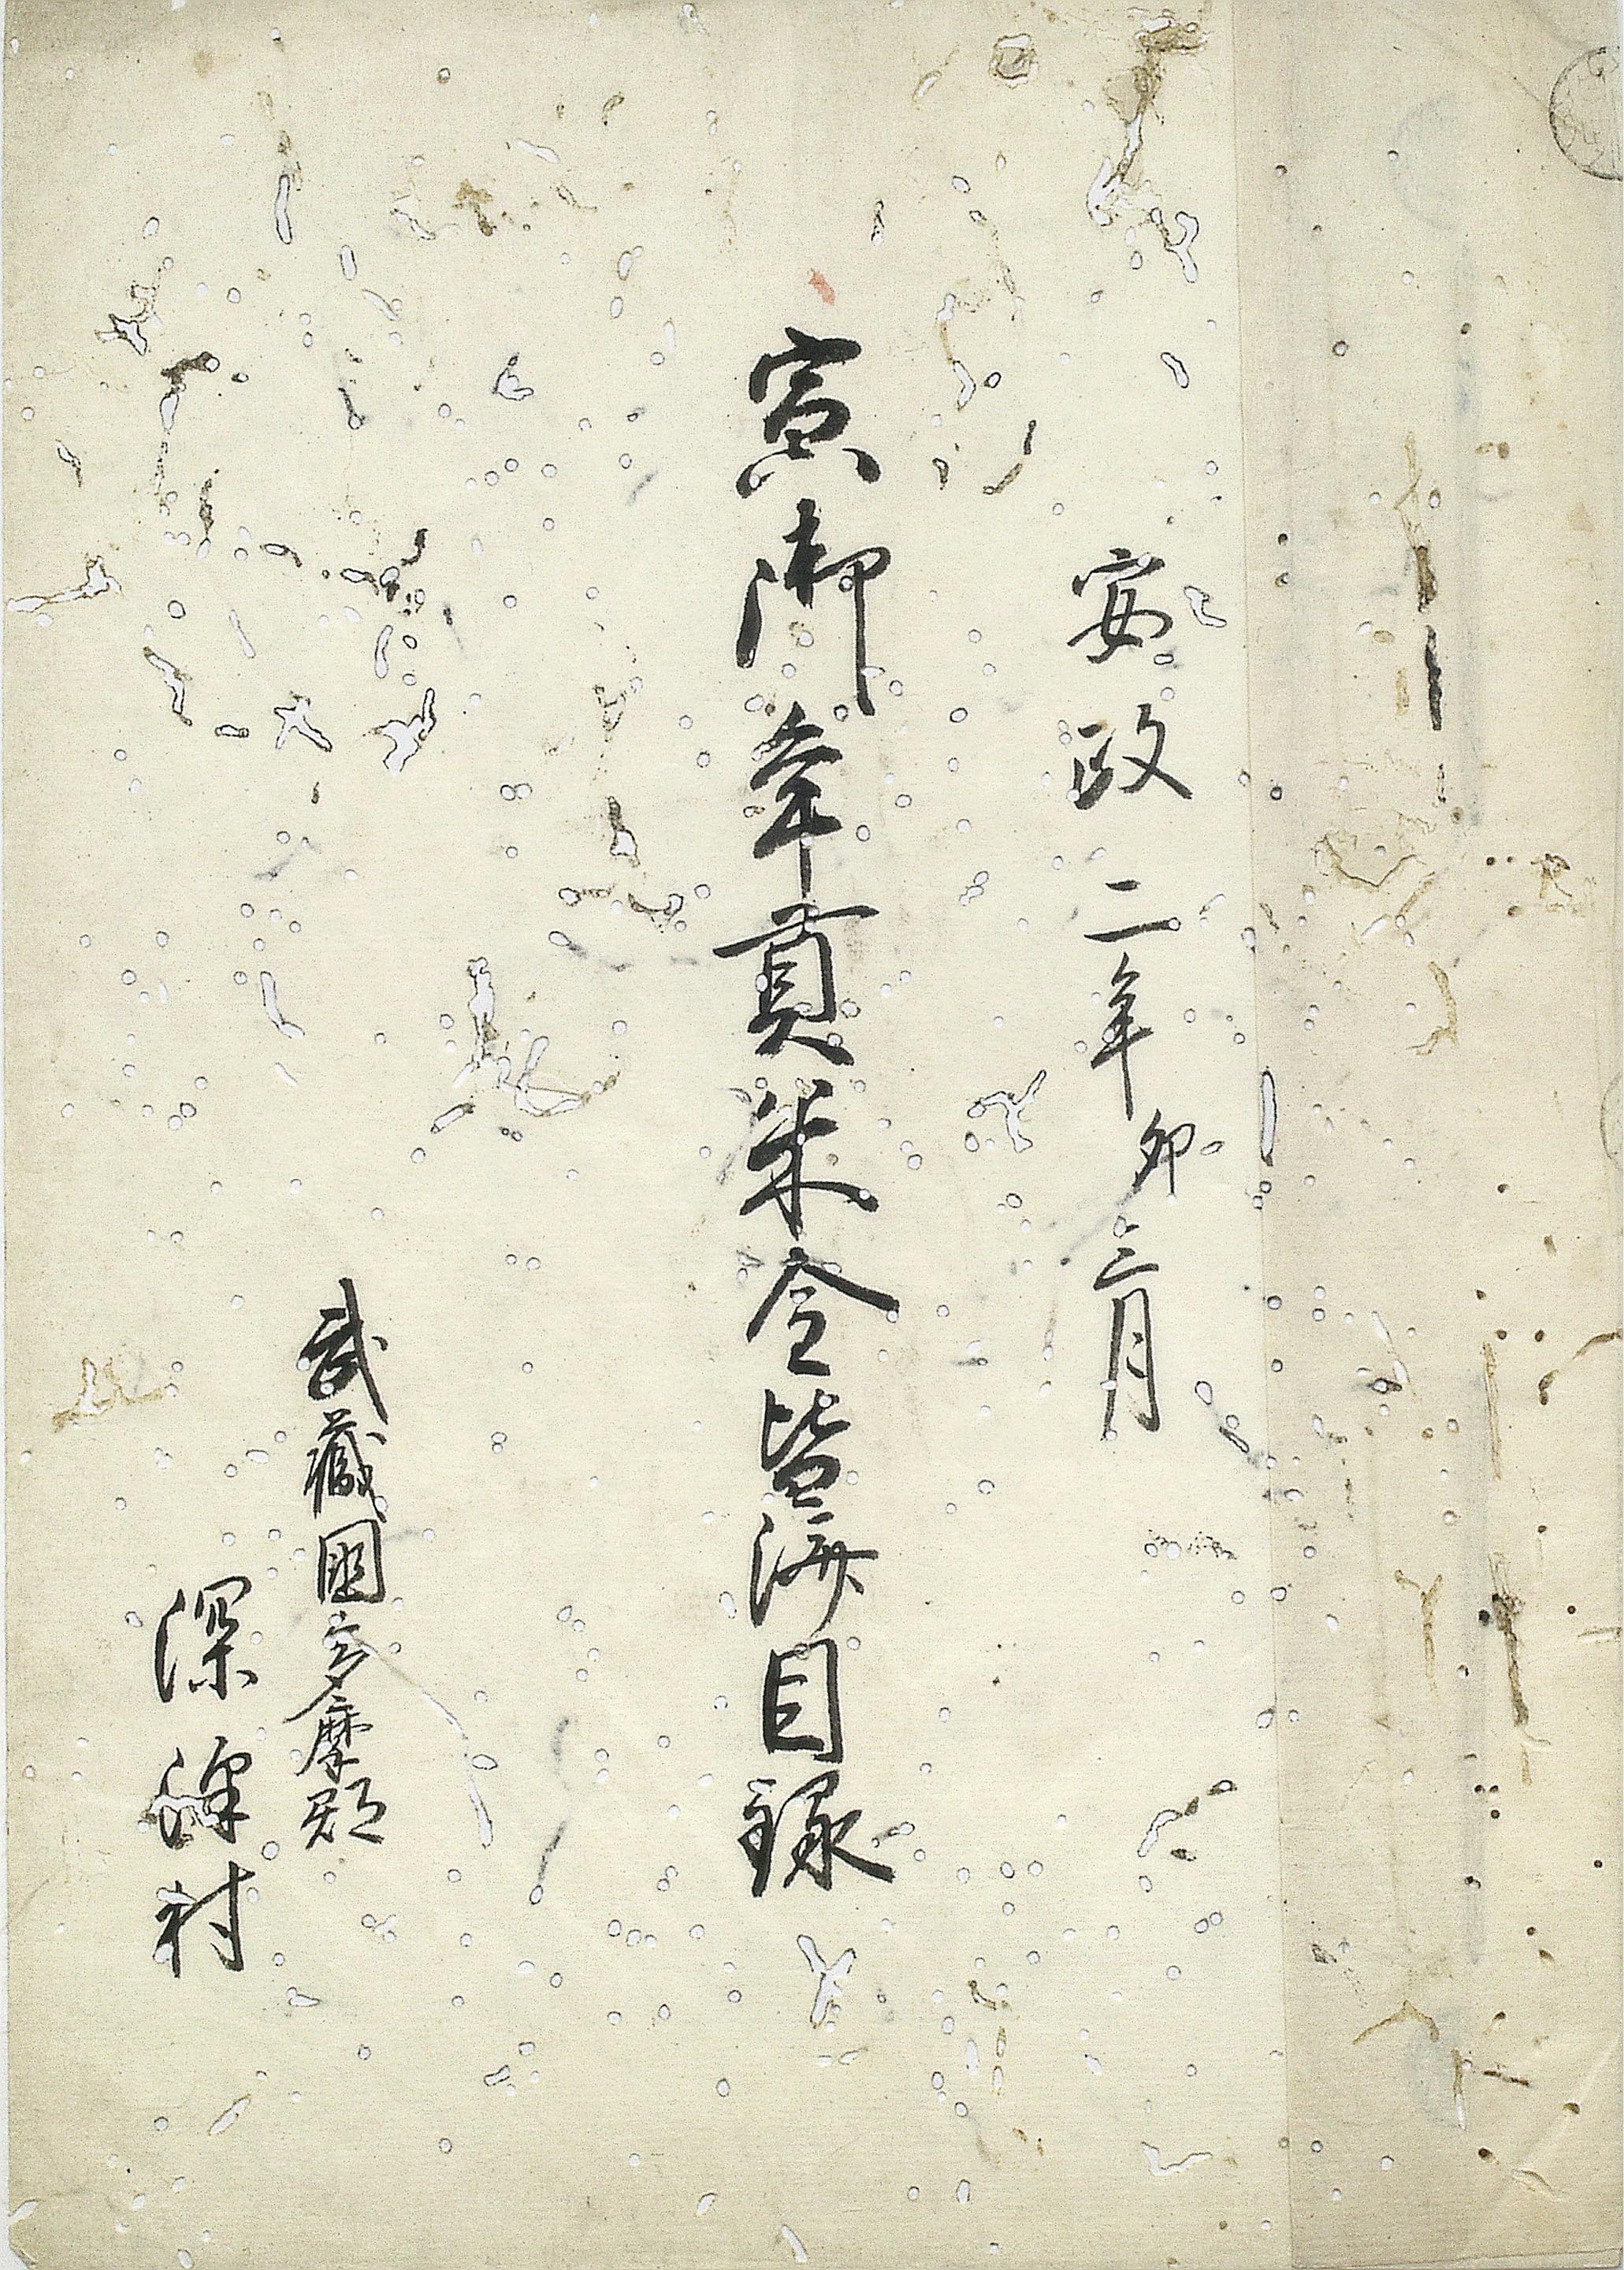 安政二年卯三月
寅御年貢米金皆済目録
武蔵国多摩郡
深澤村